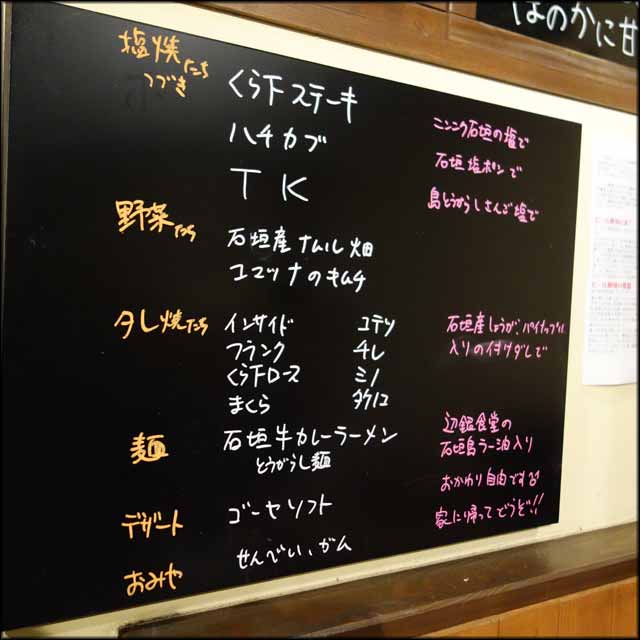 ほのかに甘
塩焼たち
つづき
くら下ステーキ
ニンニク石垣の塩で
ハチカブ
石垣塩ポンで
TK
島とうがらしさんご塩で
野菜たち
石垣産ナムル畑
コマツナのキムチ
タレ焼たち
インサイド コテツ
フランク チレ
くら下ロース ミノ
まくら タケノコ
石垣産しょうが、パイナップル
入りの付けダレで
麺
石垣牛カレーラーメン
とうがらし麺
辺銀食堂の
石垣島ラー油入り
おかわり自由です
デザート
ゴーヤソフト
家に帰ってどうぞ!!
おみや
せんべい、ガム